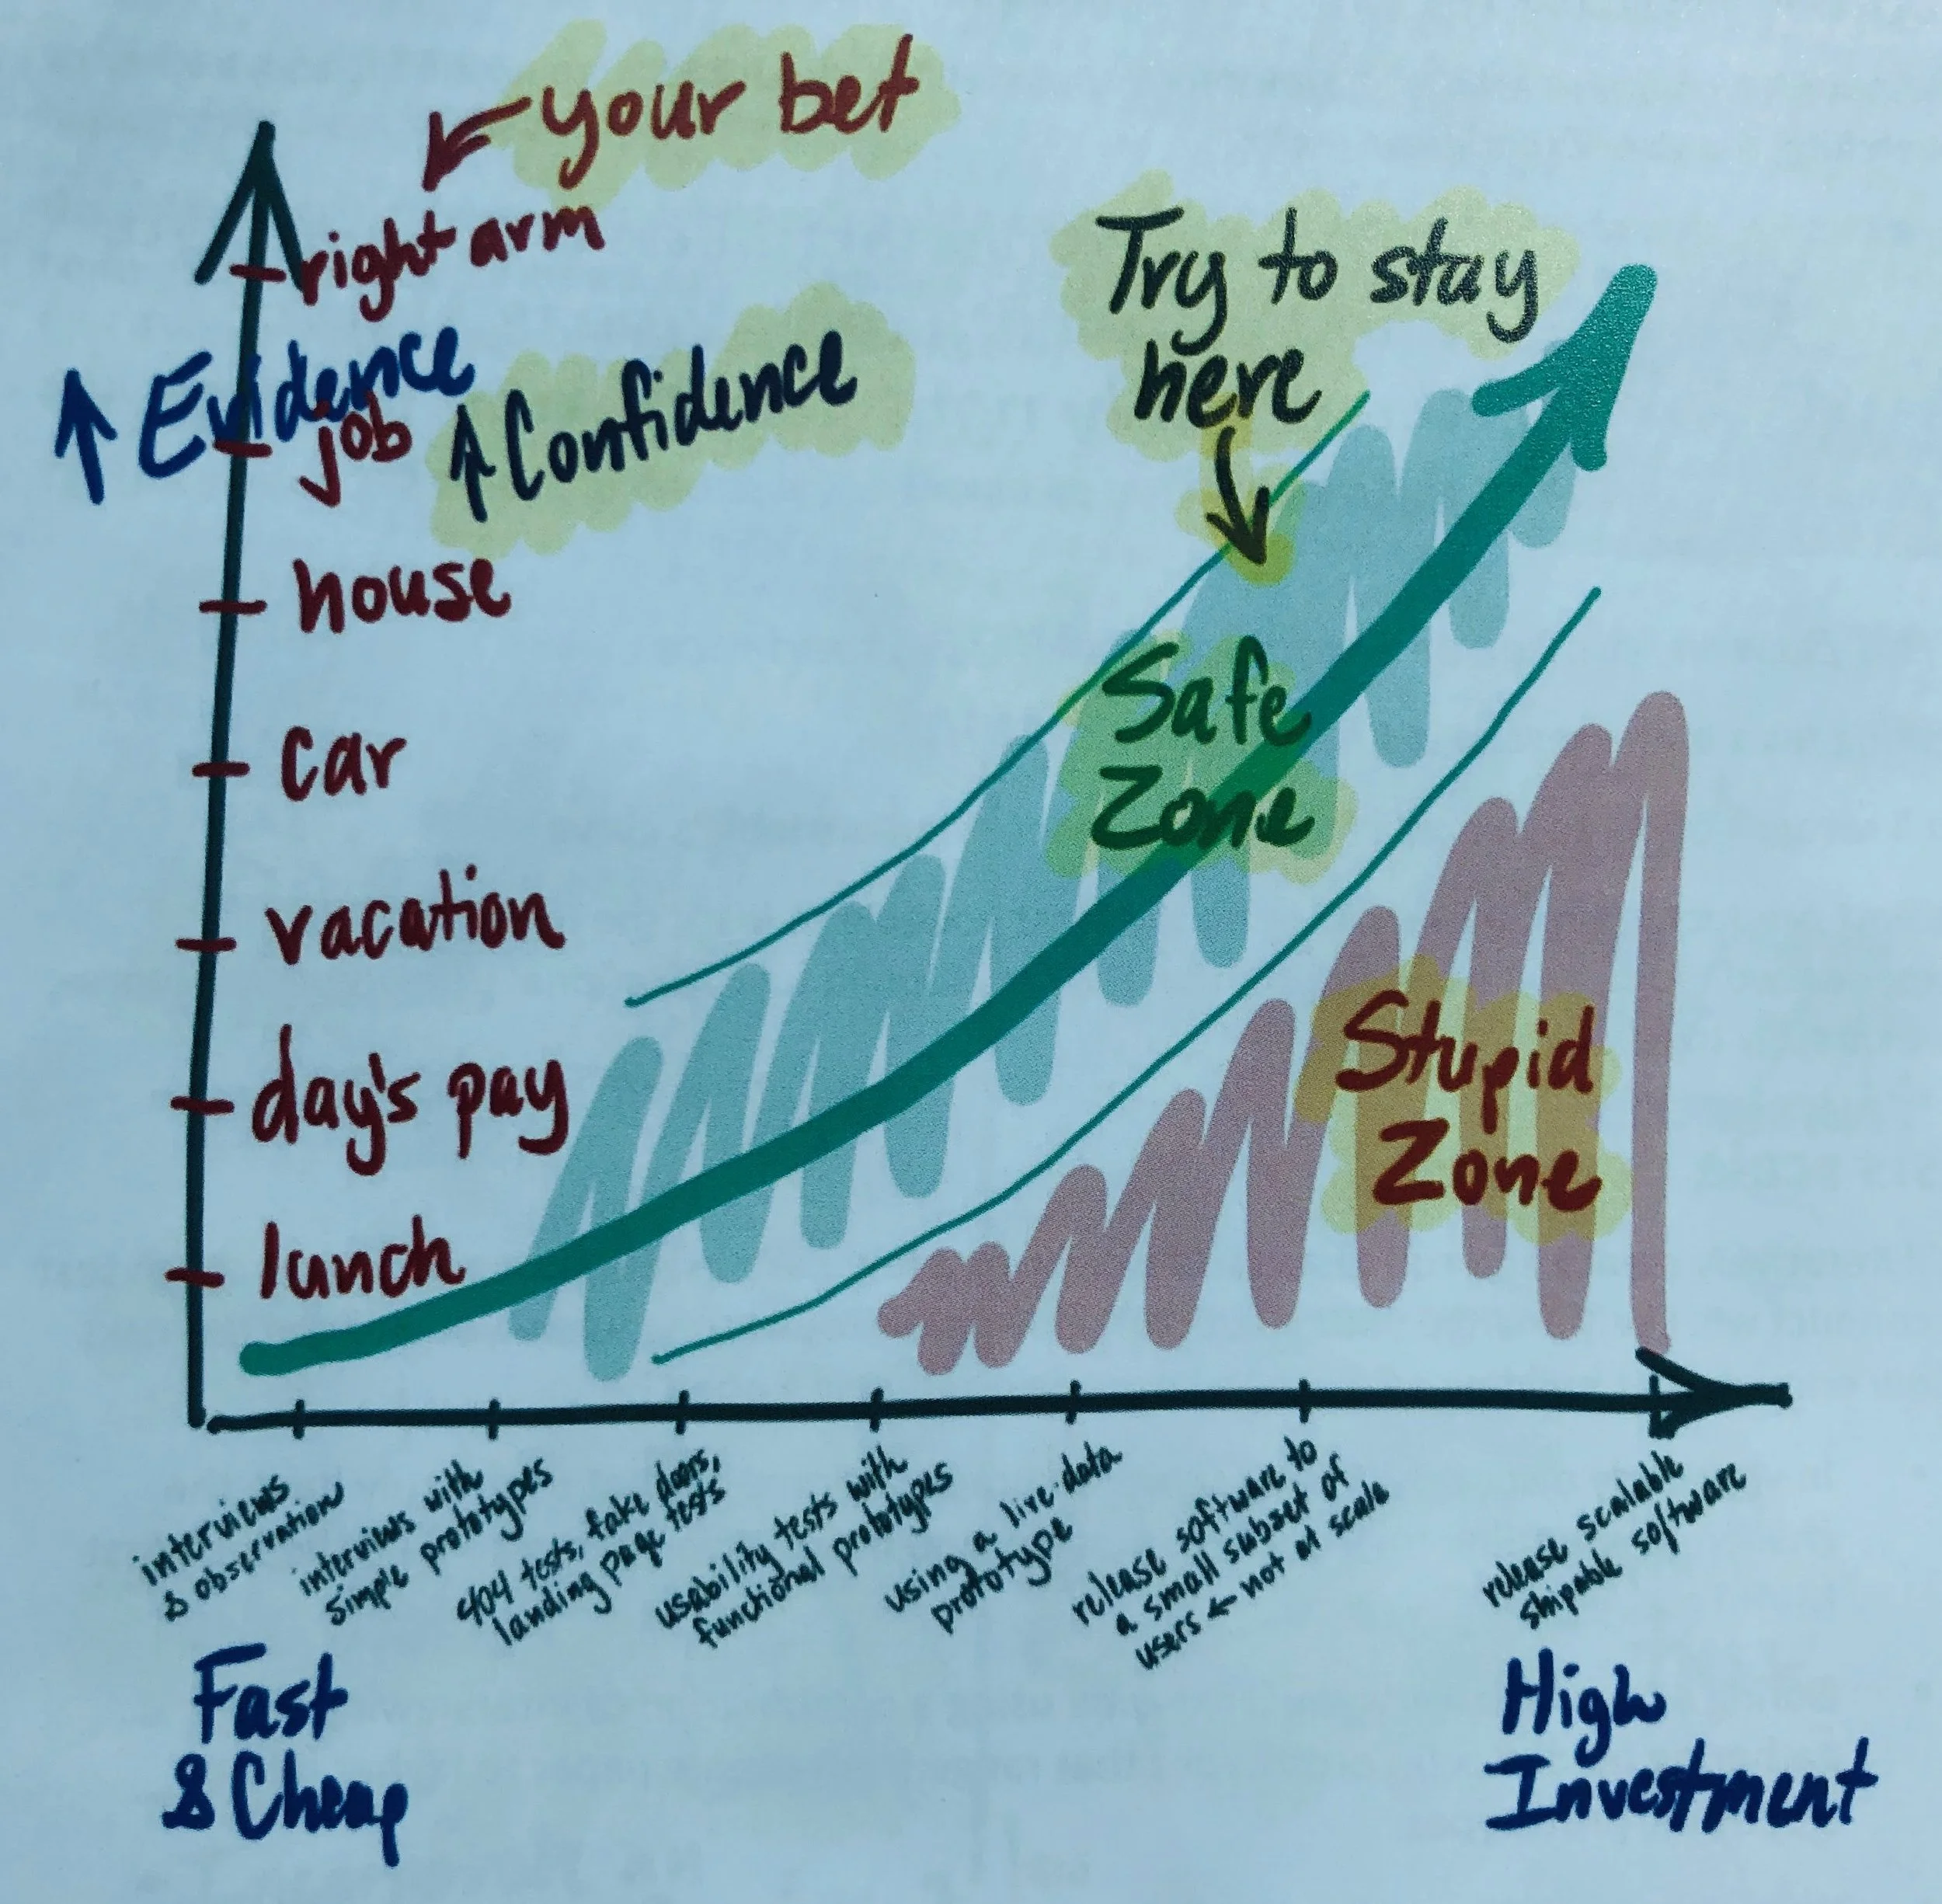 your bet
right arm
↑ Evidence
job
↑ Confidence
house
car
vacation
day's pay
lunch
Try to stay
here
Safe
Zone
Stupid
Zone
interviews
& observation
interviews with
simple prototypes
404 tests, fake doors,
landing page tests
usability tests with
functional prototypes
using a live-data
prototype
release software to
a small subset of
users ← not at scale
release scalable
shipable software
Fast
& Cheap
High
Investment